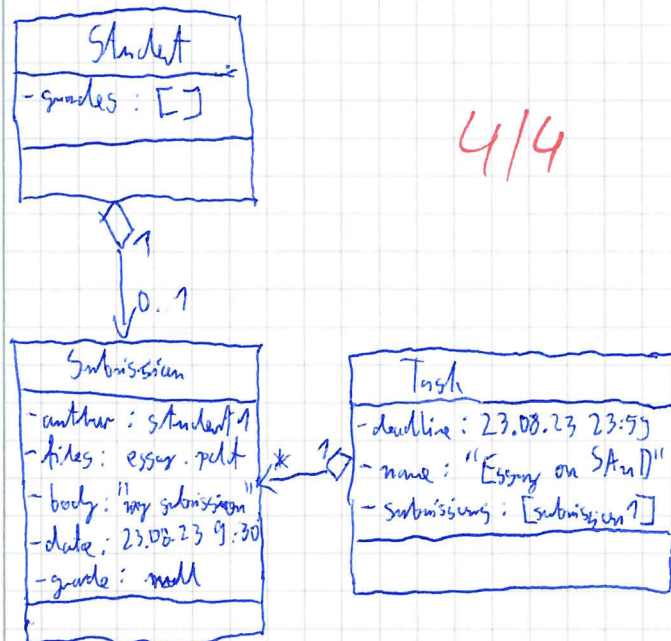 Student
- grades : []
4/4
1
0..1
Submission
- author : student1
- files : essay.pdf
- body : "my submission"
- date : 23.08.23 9:30
- grade : null
*
1
Task
- deadline : 23.08.23 23:59
- name : "Essay on SAnD"
- submissions : [submission1]